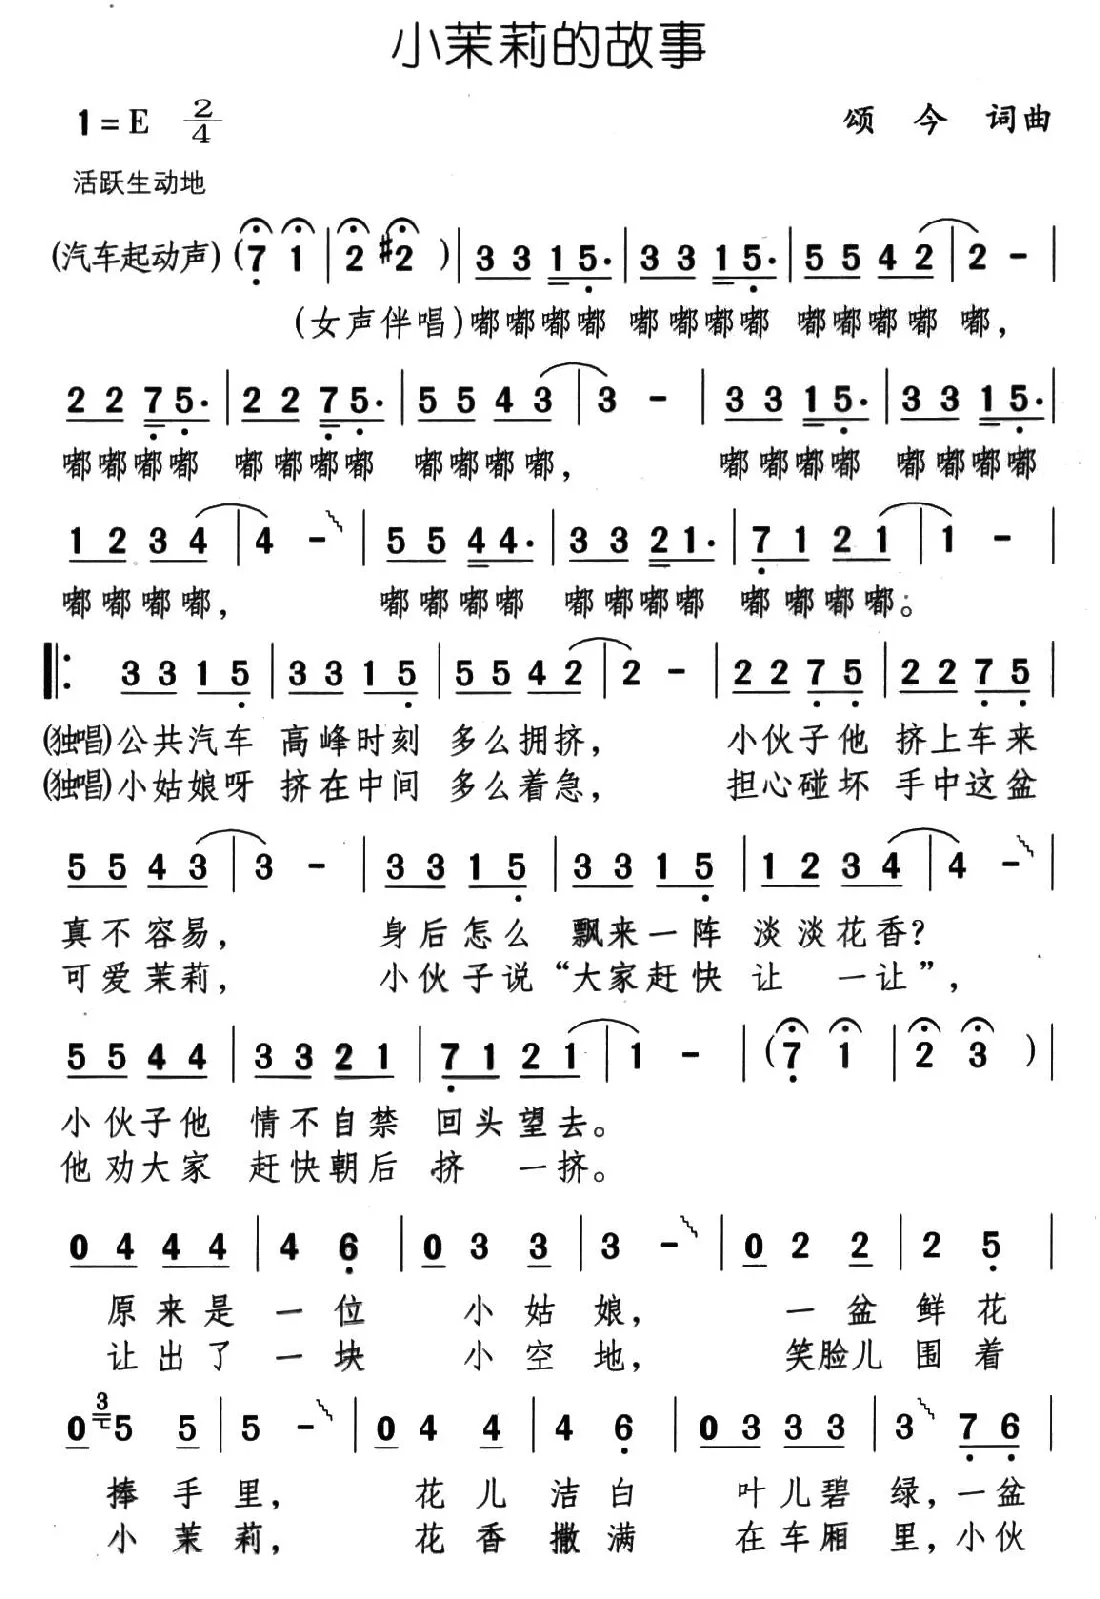 小茉莉的故事
1=E 2/4 颂 今 词曲
活跃生动地
(汽车起动声) (7 1 | 2 #2 ) | 3 3 1 5· | 3 3 1 5· | 5 5 4 2 | 2 - |
(女声伴唱)嘟嘟嘟嘟 嘟嘟嘟嘟 嘟嘟嘟嘟 嘟,
2 2 7 5· | 2 2 7 5· | 5 5 4 3 | 3 - | 3 3 1 5· | 3 3 1 5· |
嘟嘟嘟嘟 嘟嘟嘟嘟 嘟嘟嘟嘟, 嘟嘟嘟嘟 嘟嘟嘟嘟
1 2 3 4 | 4 - | 5 5 4 4· | 3 3 2 1· | 7 1 2 1 | 1 - |
嘟嘟嘟嘟, 嘟嘟嘟嘟 嘟嘟嘟嘟 嘟嘟嘟嘟。
‖: 3 3 1 5 | 3 3 1 5 | 5 5 4 2 | 2 - | 2 2 7 5 | 2 2 7 5 |
(独唱)公共汽车 高峰时刻 多么拥挤, 小伙子他 挤上车来
(独唱)小姑娘呀 挤在中间 多么着急, 担心碰坏 手中这盆
5 5 4 3 | 3 - | 3 3 1 5 | 3 3 1 5 | 1 2 3 4 | 4 - |
真不容易, 身后怎么 飘来一阵 淡淡花香?
可爱茉莉, 小伙子说“大家赶快 让 一让”,
5 5 4 4 | 3 3 2 1 | 7 1 2 1 | 1 - | (7 1 | 2 3 ) |
小伙子他 情不自禁 回头望去。
他劝大家 赶快朝后 挤 一挤。
0 4 4 4 | 4 6 | 0 3 3 | 3 - | 0 2 2 | 2 5 |
原来是 一位 小姑娘, 一盆鲜花
让出了 一块 小空地, 笑脸儿围着
0 3 5 5 | 5 - | 0 4 4 | 4 6 | 0 3 3 3 | 3 7 6 |
捧手里, 花儿洁白 叶儿碧绿,一盆
小茉莉, 花香撒满 在车厢里,小伙